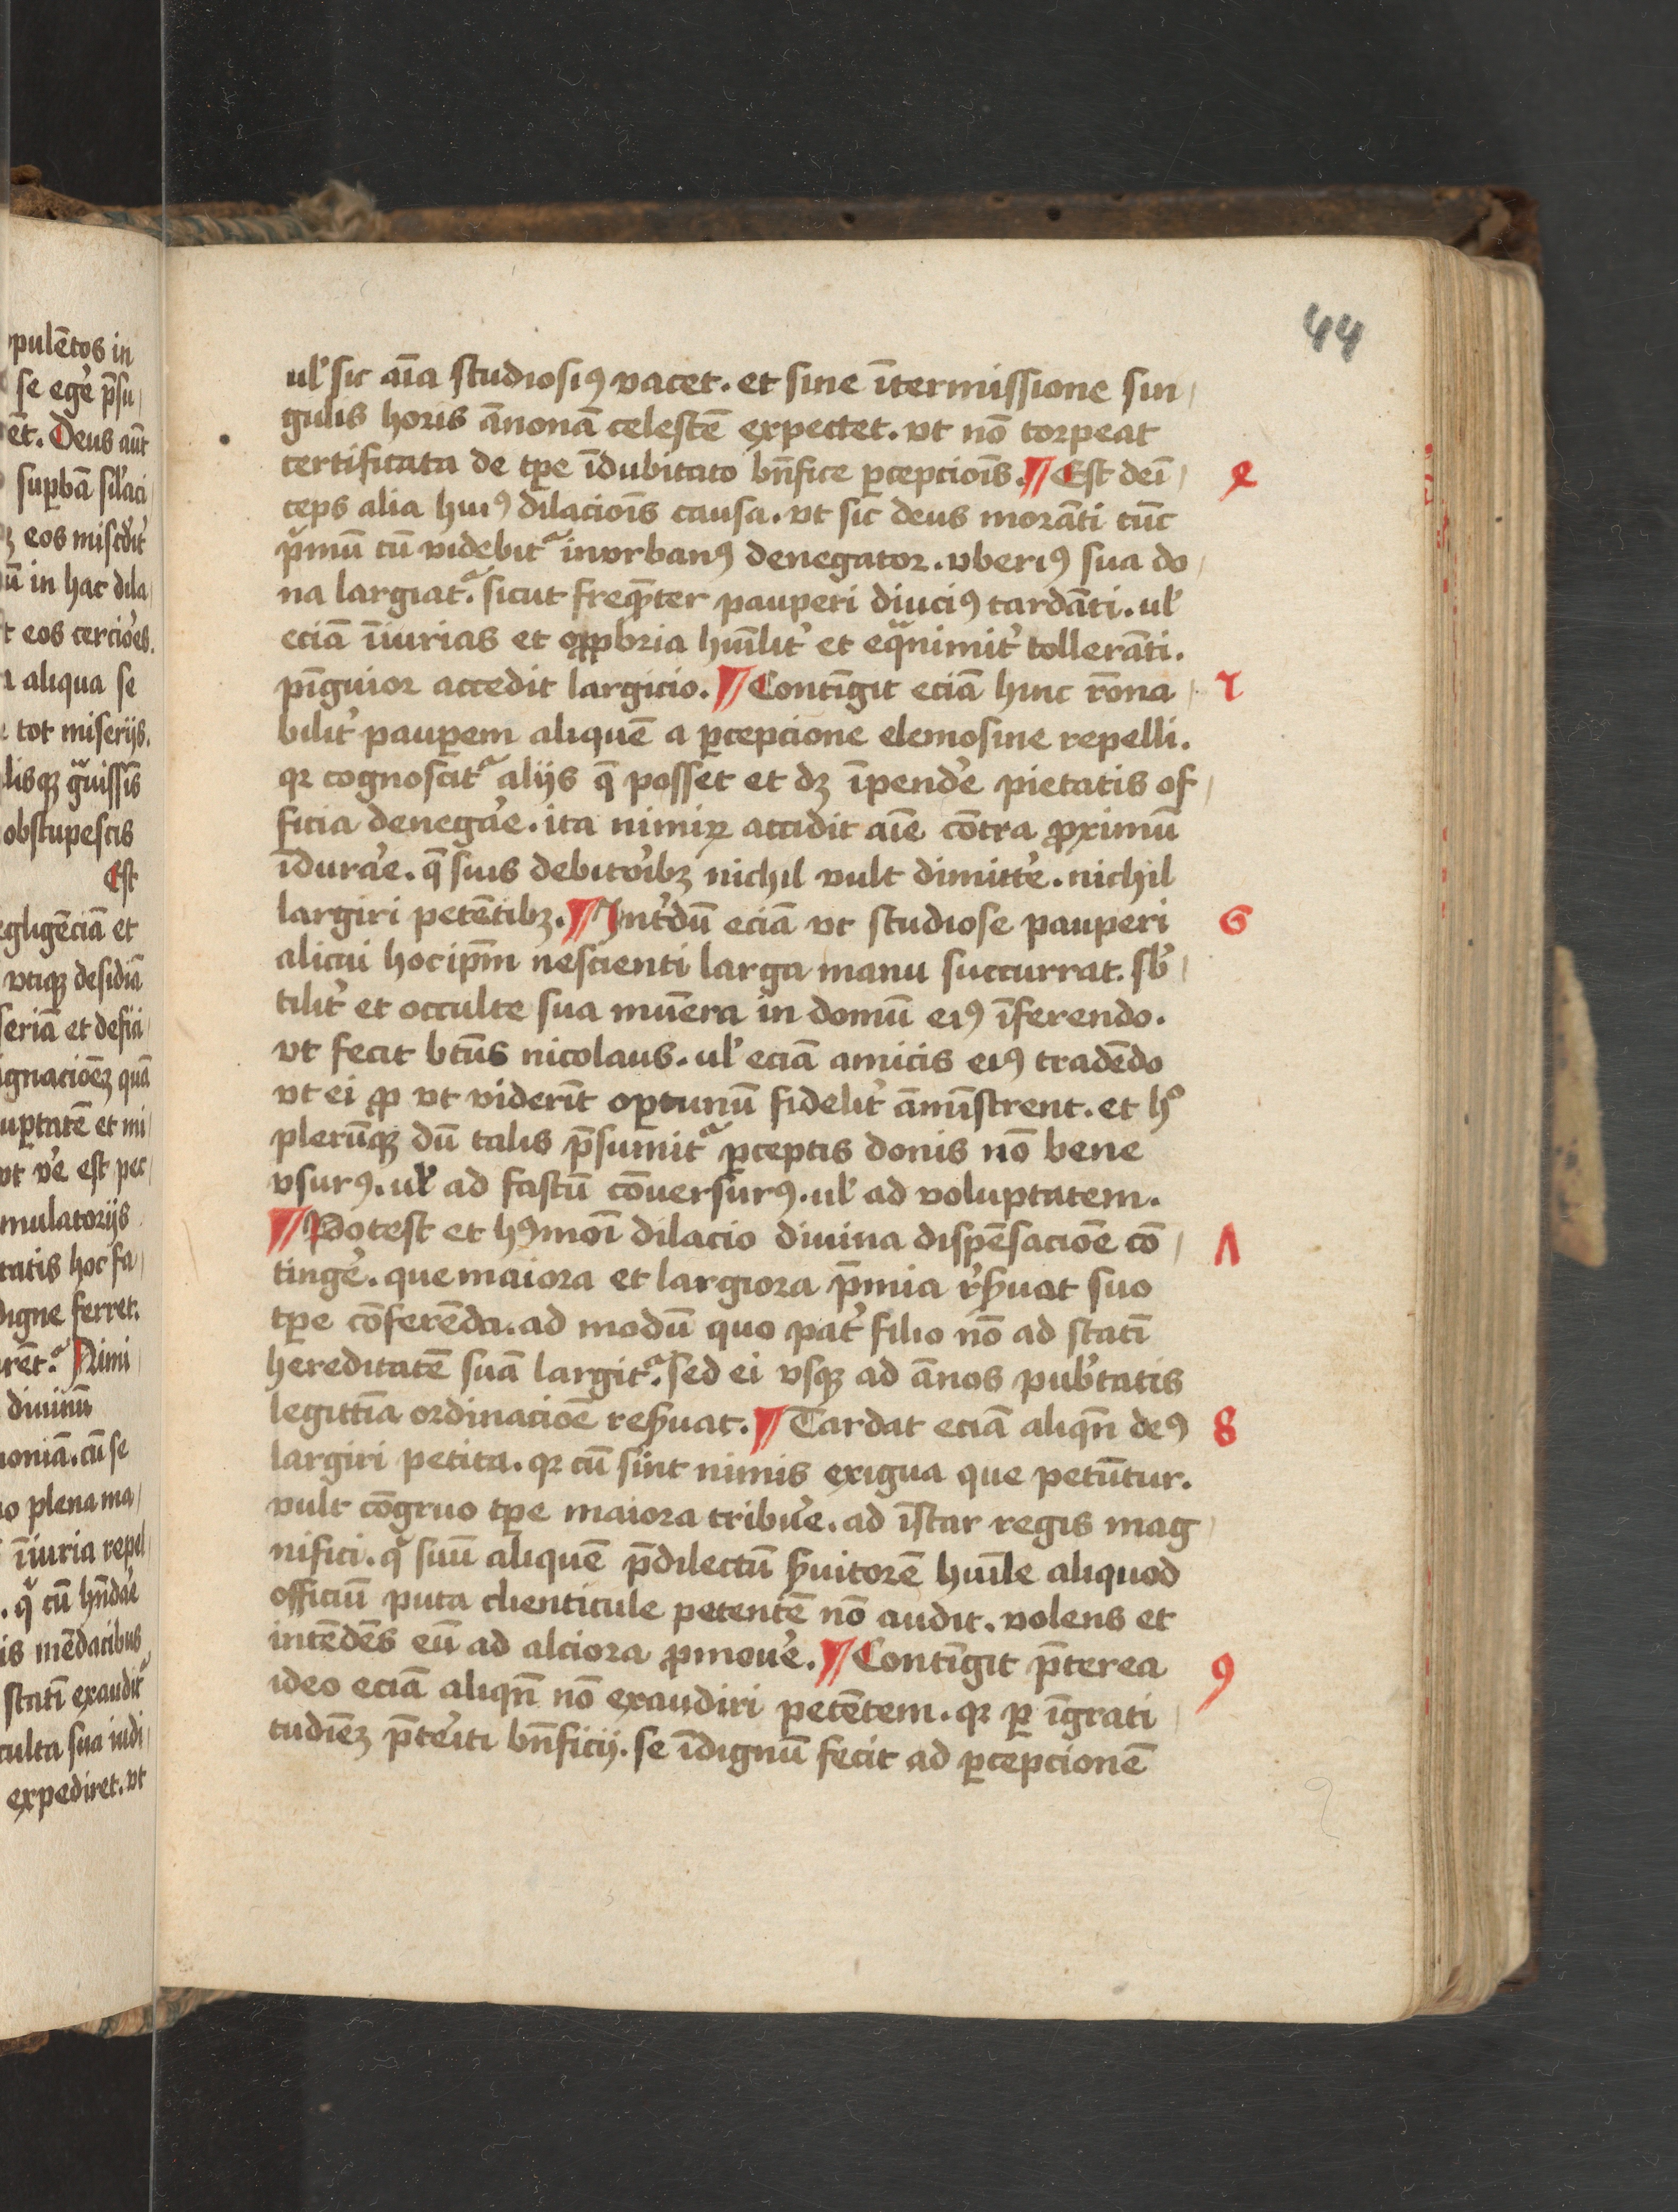 pulētos in
se egēr p̄su
ēt. Deus aūt
suꝑbā sil̓aci
eos misc̓dit̓
ū in hac dila
t eos cercio̓es.
aliqua se
tot miserijs.
lisqꝫ gͣuissīs
obstupescis
Est
egligēciā et
vtiqꝫ desidiā
seriā et defici
ignacioēꝫ quā
uptatē et mi
vt v̓e est pec
mulatorijs
tatis hoc fa
digne ferret.
rēt᷑. Nimi
diuinū
moniā. cū se
o plena ma
īiuria repel
. qͥ cū hn̄da̓e
is mēdacibus
statī exaudit᷑
culta sua iudi
expediret. vt
44
ul̓ sic aīa studiosiꝰ vacet. et sine ītermissione sin
gulis horis ānonā celestē expectet. vt nō torpeat
certificata de tꝑe īdubitato bn̄fice ꝑcepcioīs. ¶ Est deī
ceps alia huiꝰ dilacioīs causa. vt sic deus morāti tūc
pͥmū cū videbit᷑ inurbanꝰ denegator. vberiꝰ sua do
na largiat᷑. sicut freqn̄ter pauperi diuciꝰ tardāti. ul̓
eciā īiurias et oꝓpbria hūilit̓ et eqͣnimit̓ tollerāti.
pīguior accedit largicio. ¶ Contīgit eciā hinc rōna
bilit̓ pauꝑem aliquē a ꝑcepcione elemosine repelli.
qꝛ cognoscit᷑ alijs q̄ posset et dꝫ īpende̓ pietatis of
ficia denega̓e. ita nimiꝝ accidit aīe cōtra ꝓximū
īdura̓e. q̄ suis debito̓ibꝫ nichil vult dimitte̓. nichil
largiri petētibꝫ. ¶ Int̓dū eciā vt studiose pauperi
alicui hoc ip̄m nescienti larga manu succurrat. sb̓
tilit̓ et occulte sua mūera in domū eiꝰ īferendo.
vt fecit btūs nicolaus. ul̓ eciā amicis eiꝰ tradēdo
vt ei ꝓ vt viderīt oꝑtunū fidelit̓ āmīstrent. et hͦ
plerūqꝫ dū talis p̄sumit᷑ ꝑceptis donis nō bene
vsurꝰ. ul̓ ad fastū cōuersurꝰ. ul̓ ad voluptatem.
¶ Potest et hꝰmoī dilacio diuina dispēsacioē cō
tinge̓. que maiora et largiora p̄mia r̓ẜuat suo
tꝑe cōferēda. ad modū quo pat̓ filio nō ad statī
hereditatē suā largit᷑. sed ei vsqꝫ ad ānos pub̓tatis
legittīa ordinacioē reẜuat. ¶ Tardat eciā aliqn̄ deꝰ
largiri petita. qꝛ cū sint nimis exigua que petūtur.
vult cōgruo tꝑe maiora tribue̓. ad īstar regis mag
nifici. qͥ suū aliquē p̄dilectū ẜuitorē hūile aliquod
officiū puta clienticule petentē nō audit. volens et
intēdēs eū ad alciora ꝓmoue̓. ¶ Contīgit p̄terea
ideo eciā aliqn̄ nō exaudiri petētem. qꝛ ꝑ īgrati
tudīeꝫ p̄te̓iti bn̄ficij. se īdignū fecit ad ꝑcepcionē
6
Λ
8
9